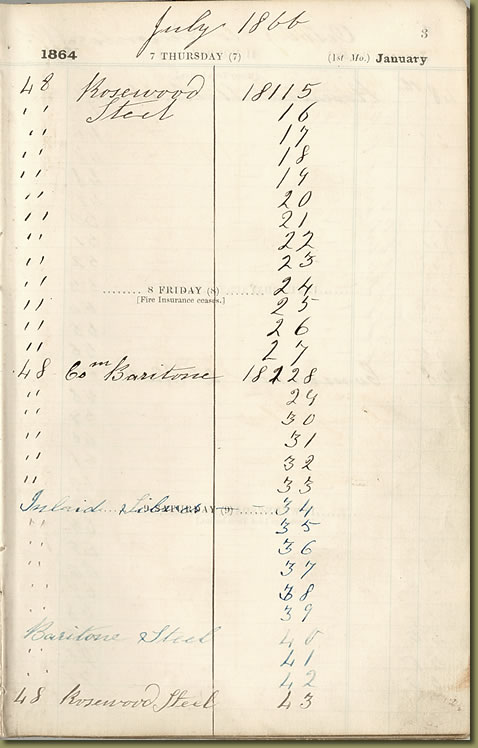 July 1866
3
1864 7 THURSDAY (7) (1st Mo.) January
48 Rosewood 18115
" Steel 16
" 17
" 18
" 19
" 20
" 21
" 22
" 23
8 FRIDAY (8) 24
[Fire Insurance ceases.]
" 25
" 26
" 27
48 Com Baritone 18128
" 29
" 30
" 31
" 32
" 33
Inlaid 9 SATURDAY (9) 34
" 35
" 36
" 37
" 38
" 39
Baritone Steel 40
" 41
" 42
48 Rosewood Steel 43